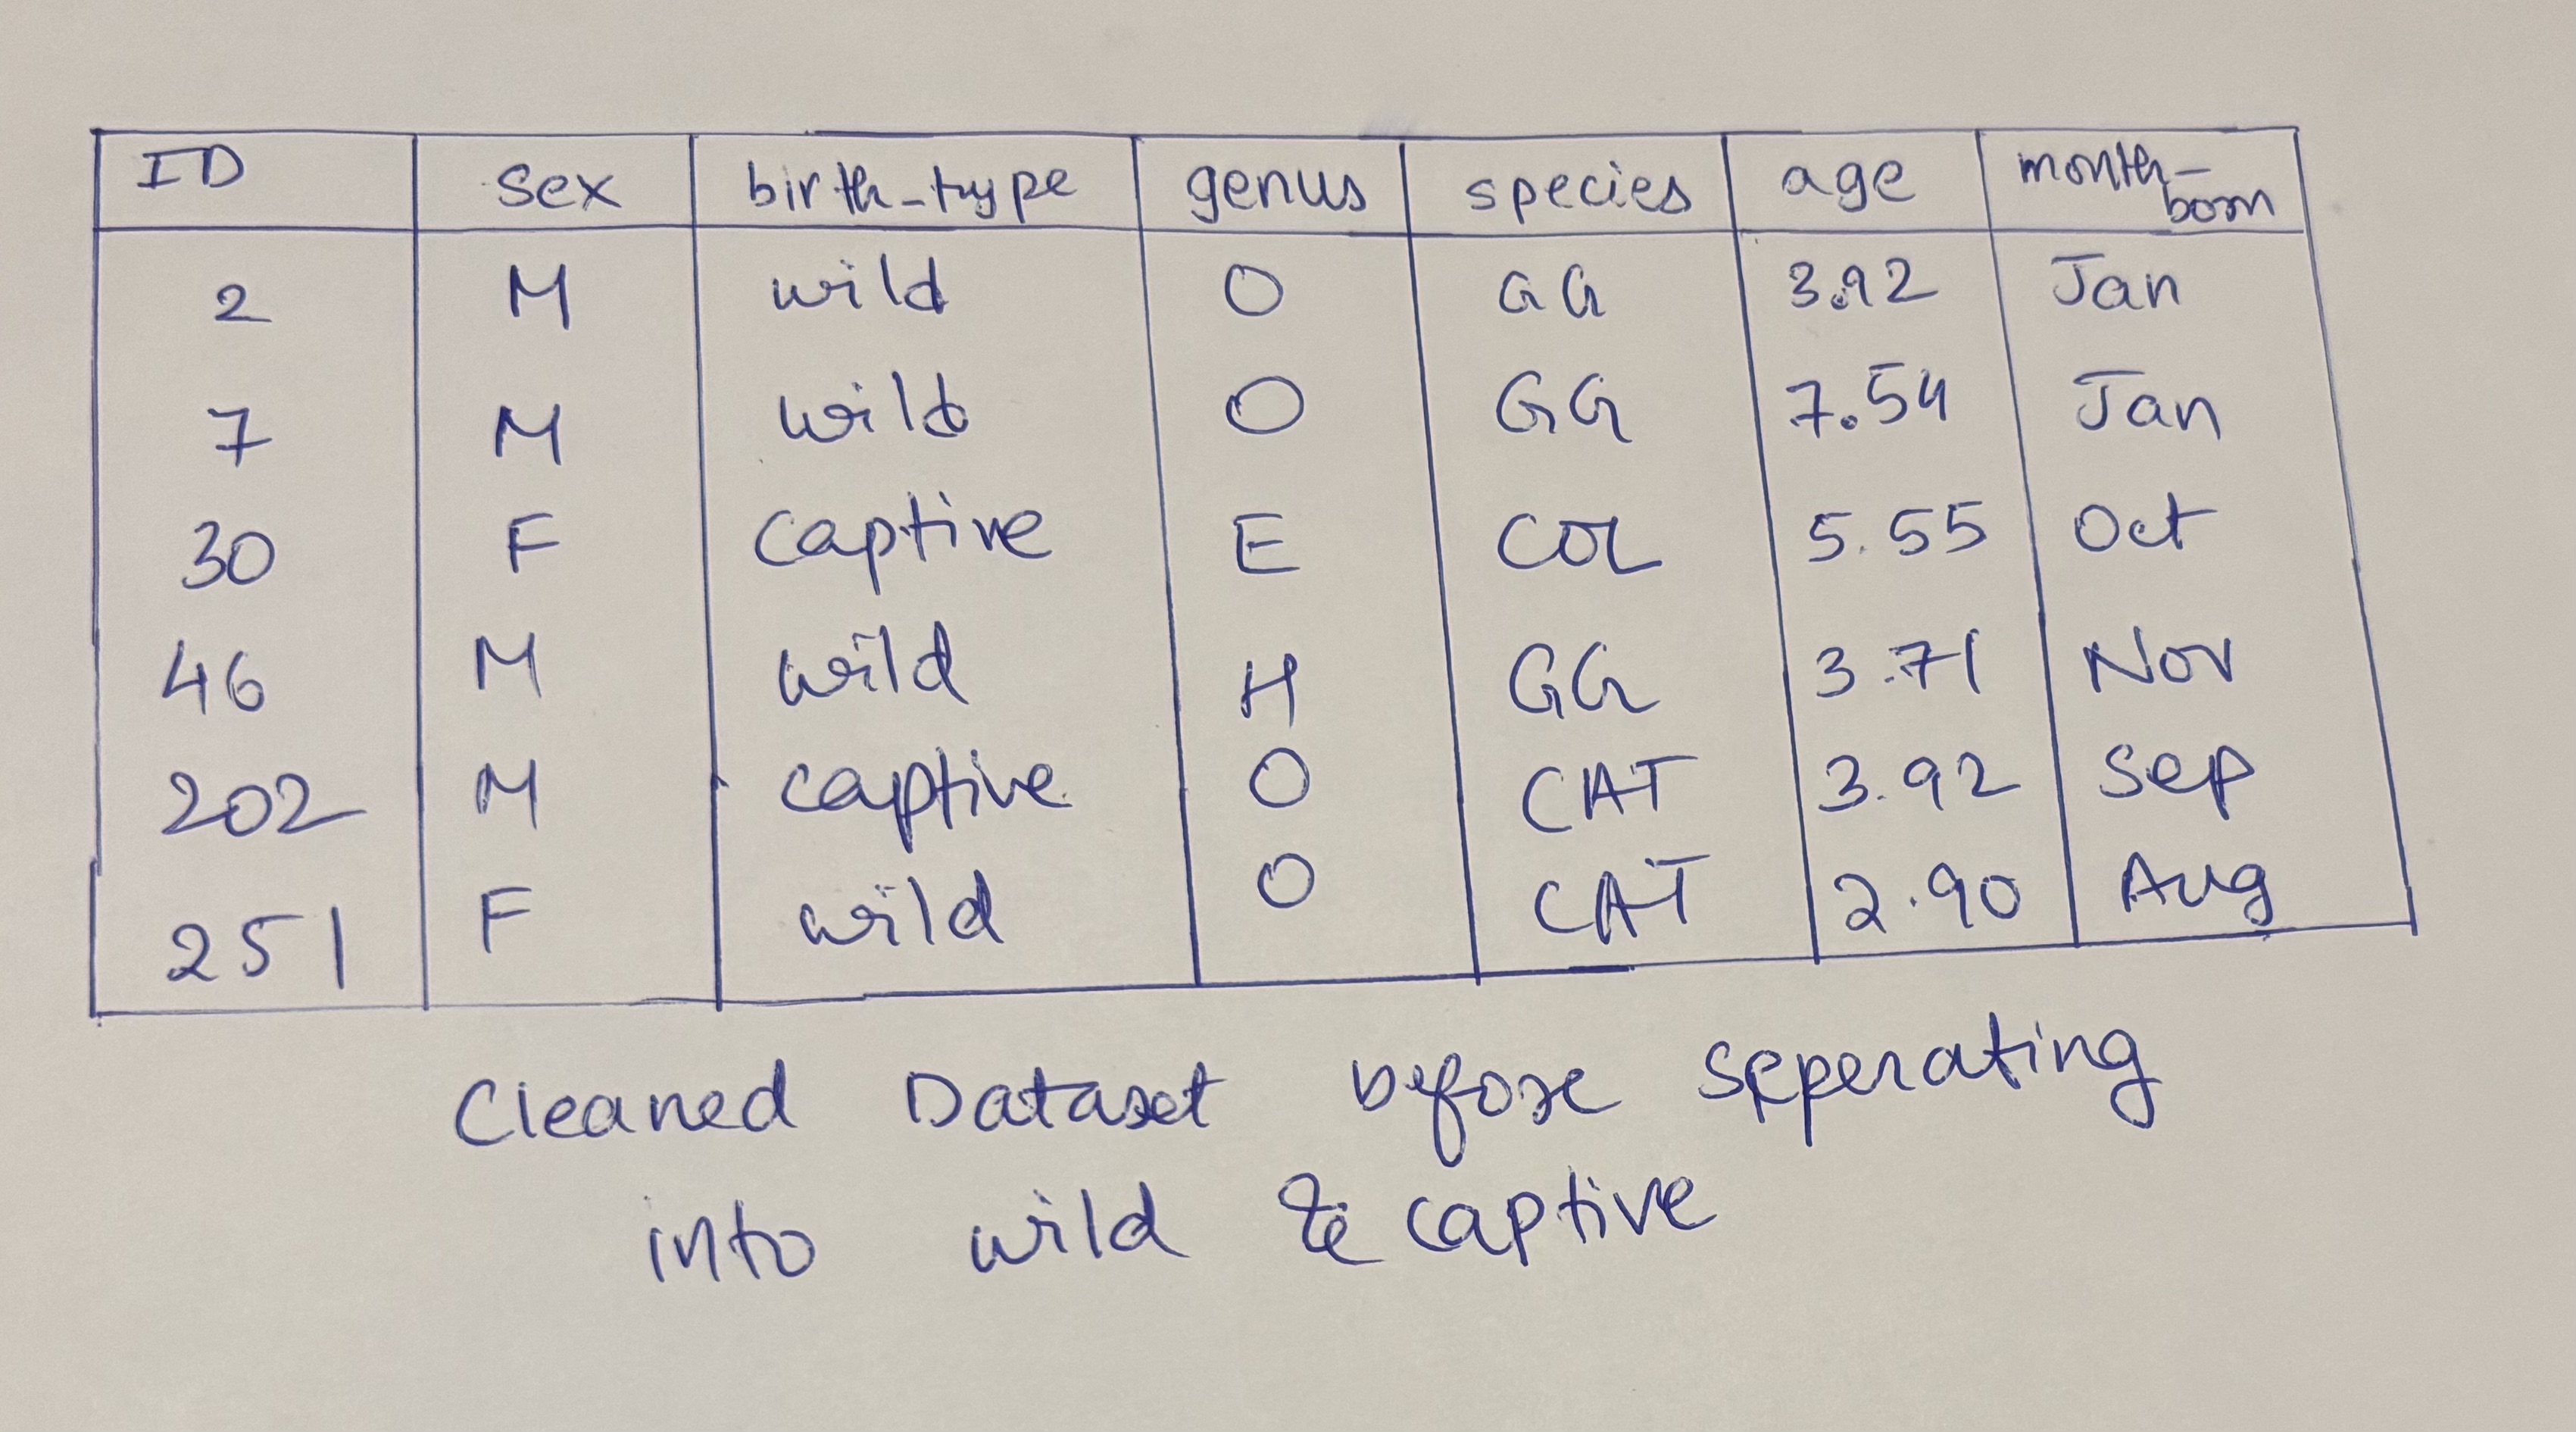 ID sex birth-type genus species age month-born
2 M wild O GG 3.92 Jan
7 M wild O GG 7.54 Jan
30 F captive E COL 5.55 Oct
46 M wild H GG 3.71 Nov
202 M captive O CAT 3.92 Sep
251 F wild O CAT 2.90 Aug
Cleaned Dataset before seperating
into wild & captive